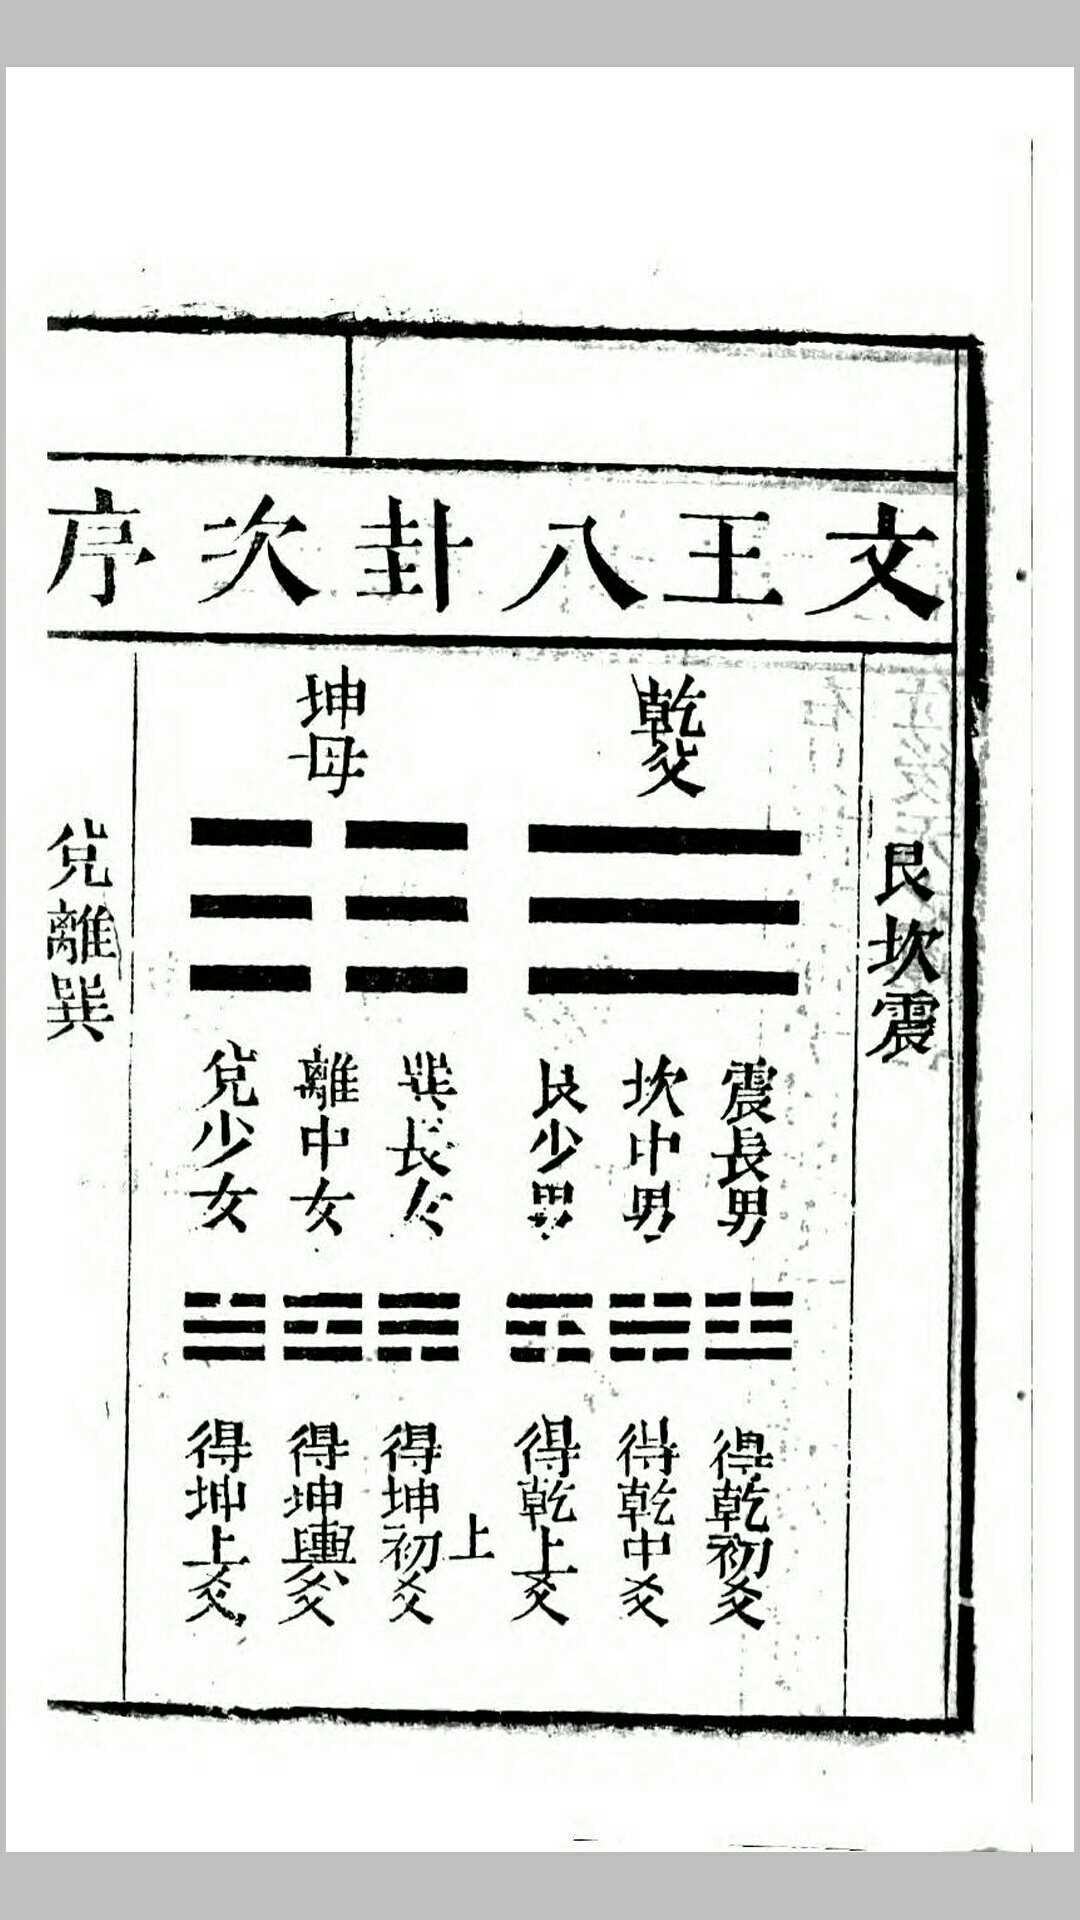 文王八卦次序
艮坎震
乾父
坤母
震長男
坎中男
艮少男
巽長女
離中女
兌少女
得乾初爻
得乾中爻
得乾上爻
上
得坤初爻
得坤輿爻
得坤上爻
兌離巽